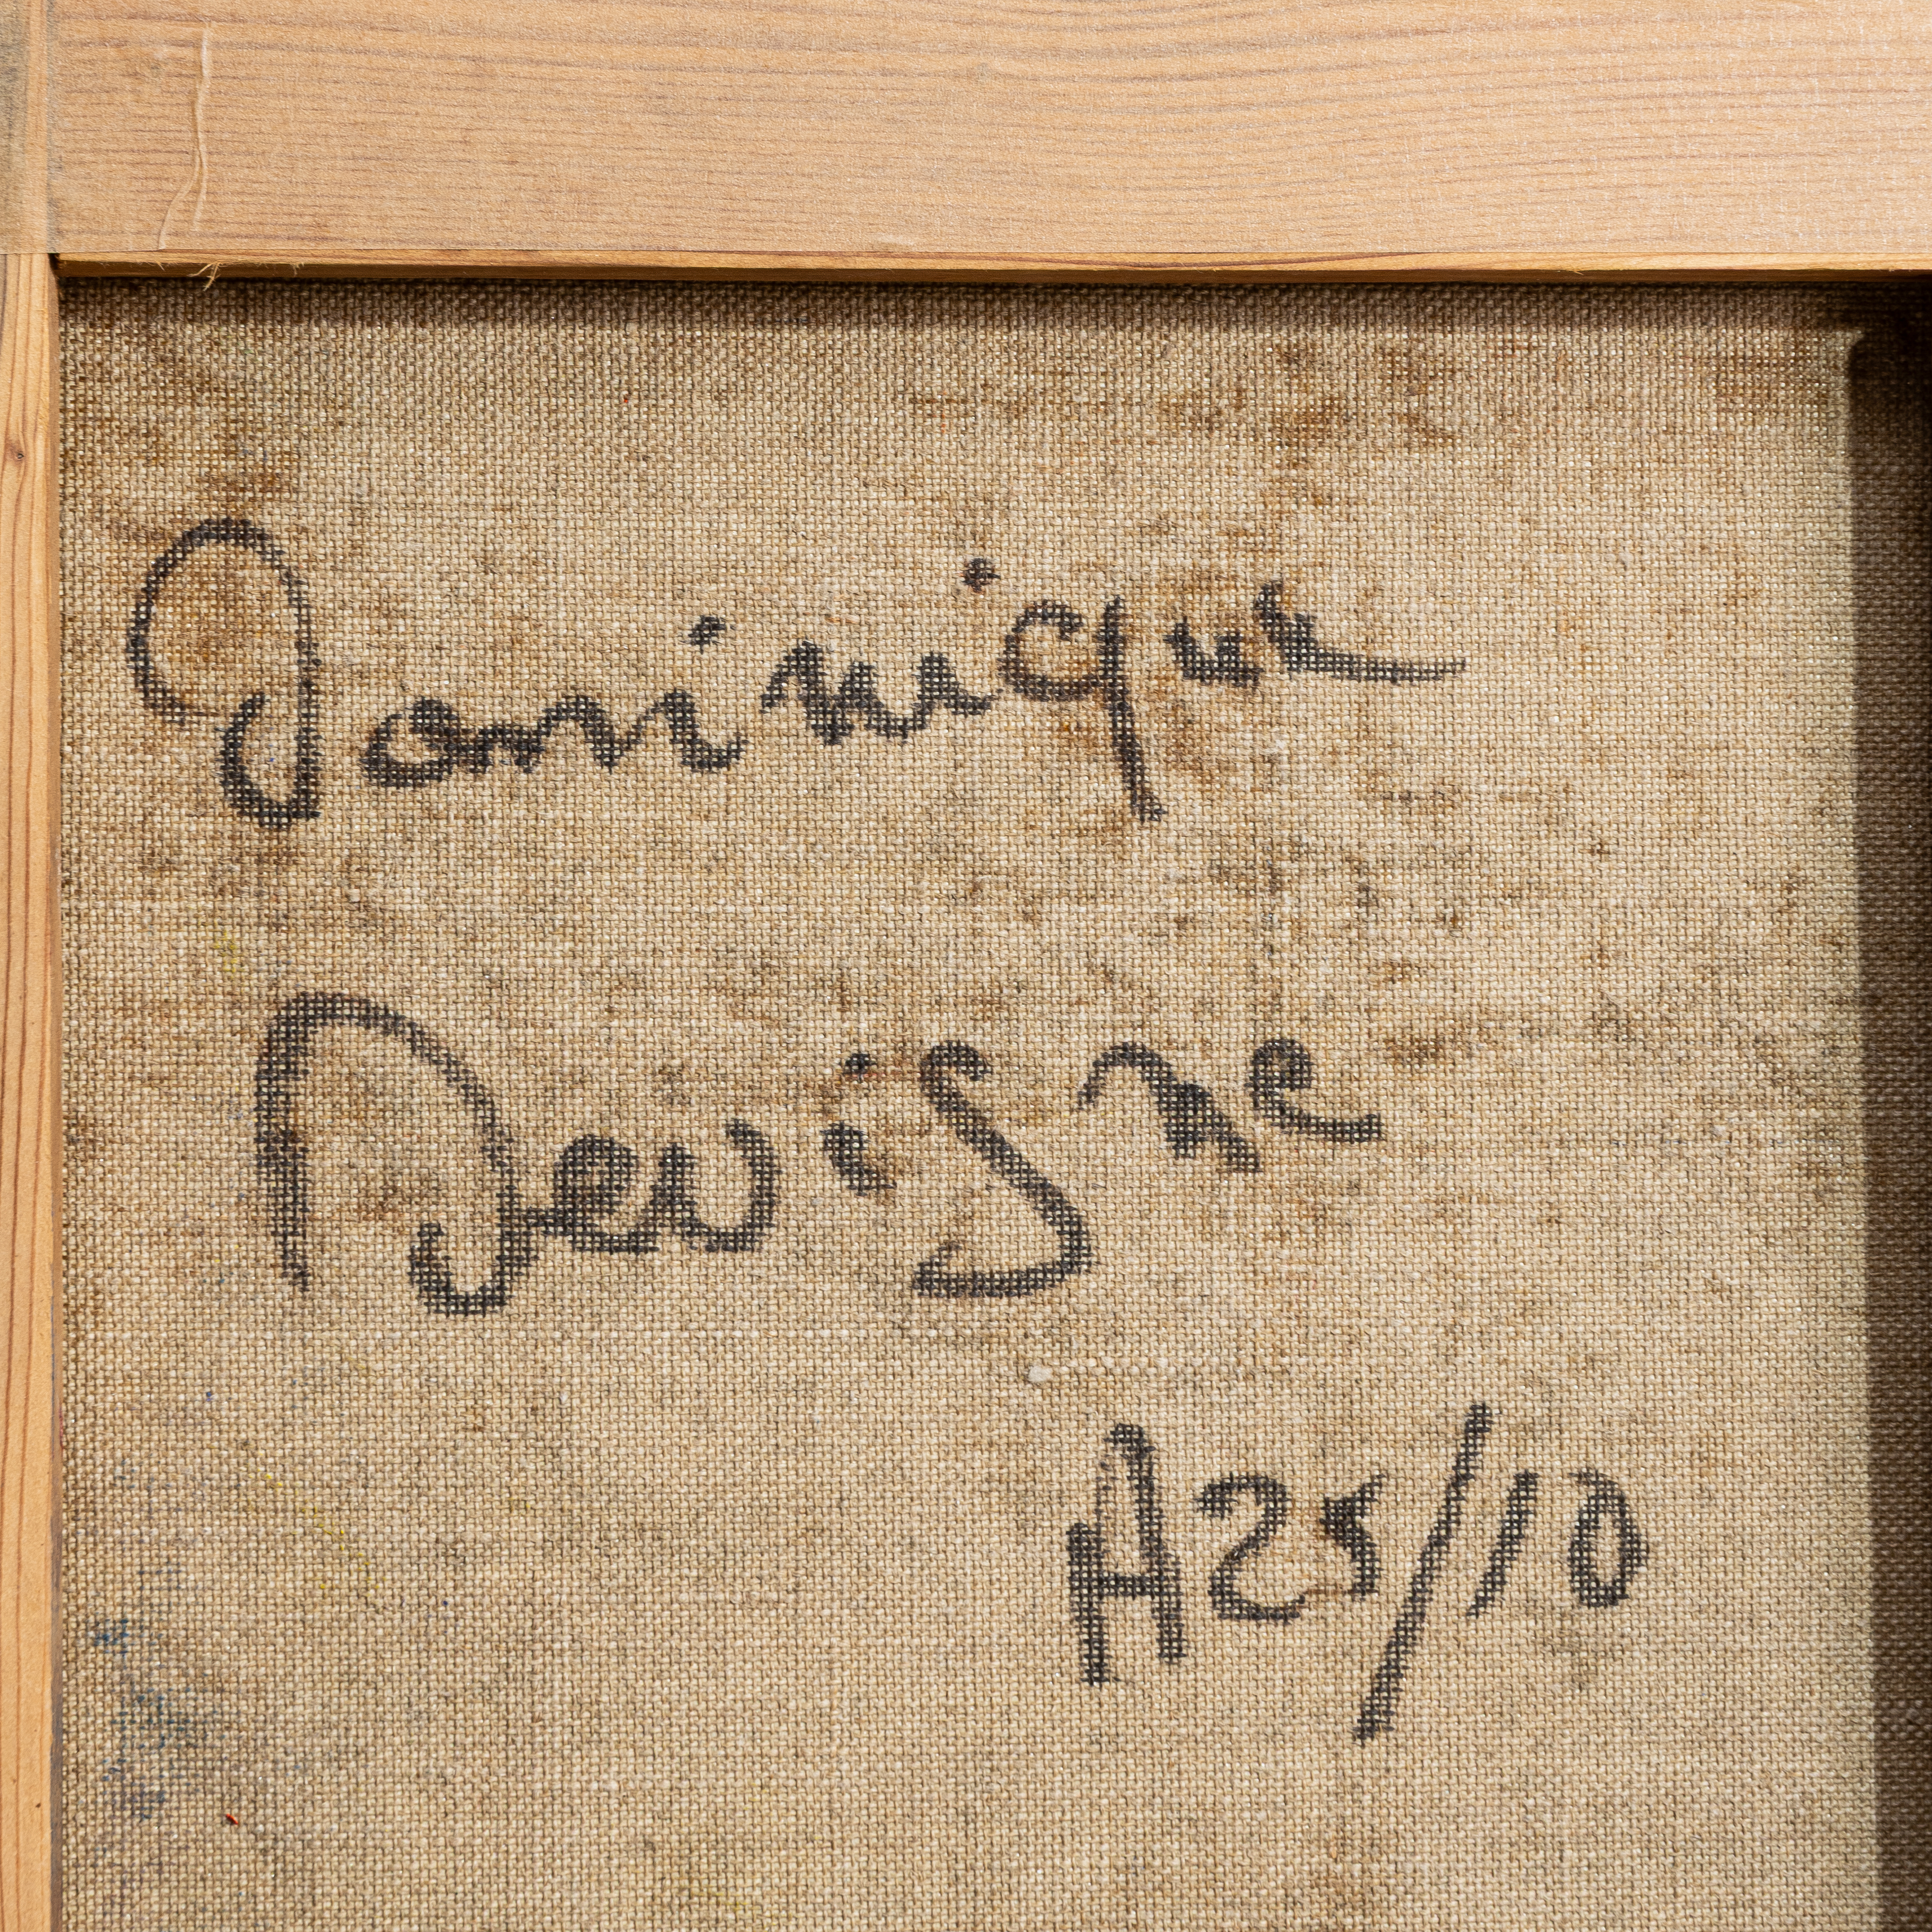 Dominique
Devisne
A25/10